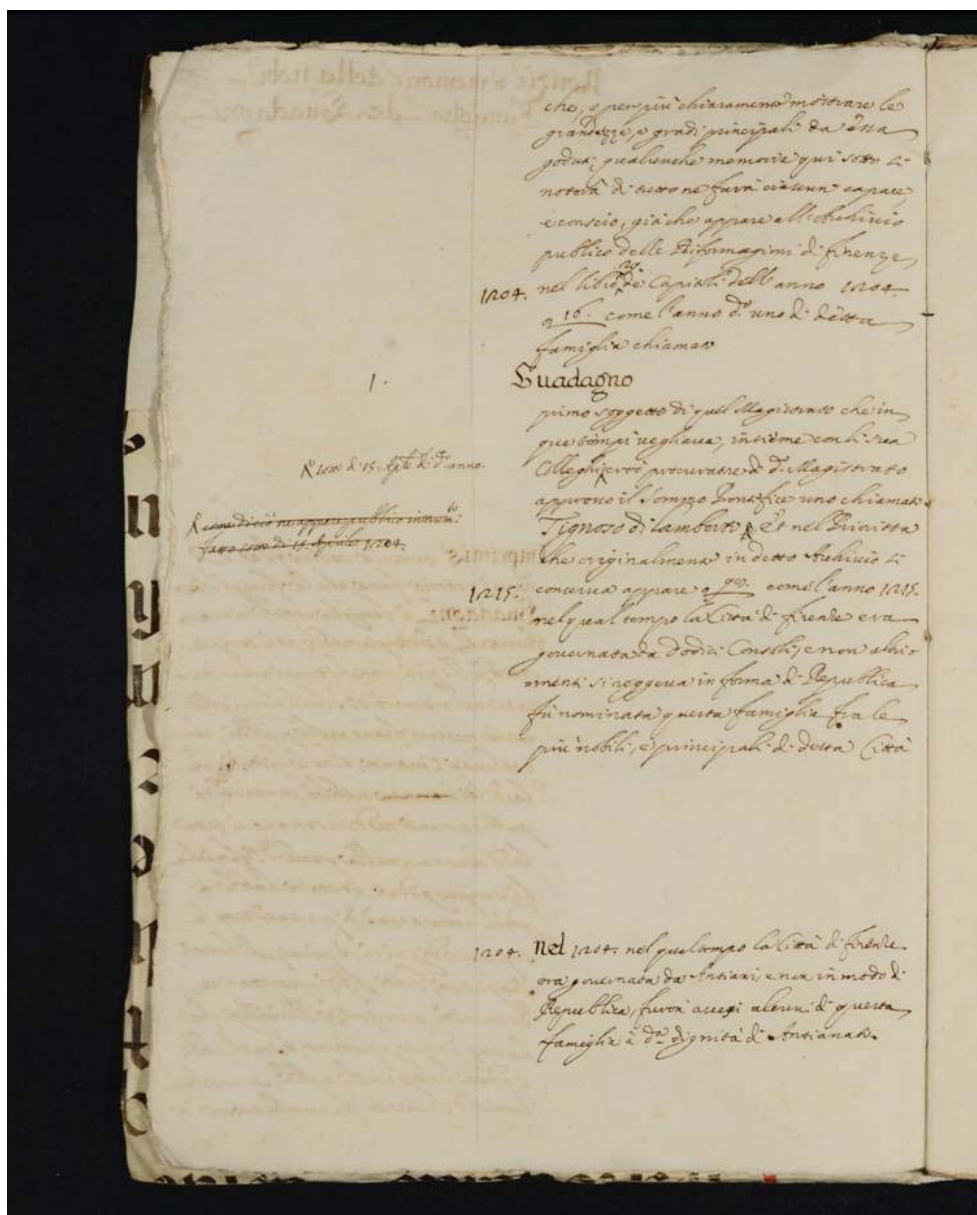 che, e per più chiaramente mostrare le
grandezze, e gradi principali da essa
goduti, qualunche memoria qui sotto si
noterà di tutto ne farà ciascun capace,
e conscio, già che appare all'Archivio
publico delle Riformagioni di firenze
1204. nel libro 29 de Capitoli dell'anno 1204
a 16. come l'anno dº uno di detta
famiglia chiamato
1. Guadagno
primo soggetto di quel Magistrato che in
que tempi vegliava, insieme con li sua
Colleghi, procuratore di dº Magistrato
appresso il Sommo Pontefice uno chiamato
Tignoso di lamberto et nel Priorista
che originalmente in detto Archivio si
1215. conserva appare a come l'anno 1215.
nel qual tempo la Città di firenze era
governata da dodici Consoli, e non altri
menti si reggeva in forma di Republica
fù nominata questa famiglia fra le
più nobili, e principali di detta Città
di 15 Aple di dº anno.
come di ciò ne appare publico instrumto
fatto sotto di 15 Aprile 1204.
1204. Nel 1204. nel qual tempo la Città di firenze
era governata da Antiani, e non in modo di
Republica, furon alcuni di questa
famiglia à dª dignità di Antianato